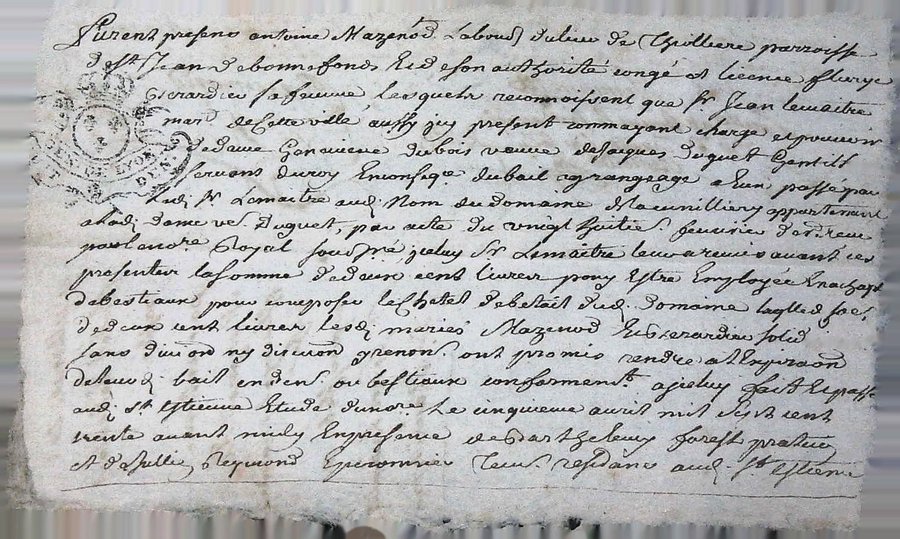 furent presens antoine Mazenod Labour^r du lieu de Thilliere parroisse
de St Jean de bonnefonds Et de son authorité congé et licence fleurye
Gerardier sa femme lesquels reconnoissent que Sr Jean lemaitre
mar^d de cette ville aussy icy present comme ayant charge et pouvoir
de dame Genevieve Dubois veuve de Jacques Duguet Gentilh
servant du roy En conseq^ce du bail a grangeage a Eux passé par
led^t Sr Lemaitre aud^t Nom du Domaine de appartenant
a lad^e dame ve^e Duguet, par acte du vingt huitie^e fevrier dernier
par le no^re Royal sous^né iceluy Sr Lemaitre leur a remis avant ces
presentes la somme de deux cent livres pour Estre Employée En achapt
de bestiaux pour composer le Chetel de betail dud^t Domaine laq^lle de
de deux cent livres lesd^ts mariés Mazenod Et Gerardier solid^t
sans division ny discution renon^t ont promis rendre a l'Expiraon
de leur d^t bail en den^s ou bestiaux conformem^t a iceluy fait Et passé
aud^t St Estienne Etude du no^re Le cinquieme avril mil sept cent
trente avant midy En presence de Barthelemy forest praticien
et de Reymond Eperonnier Tem^s residans aud^t St Estienne
DE LYON
GEN.